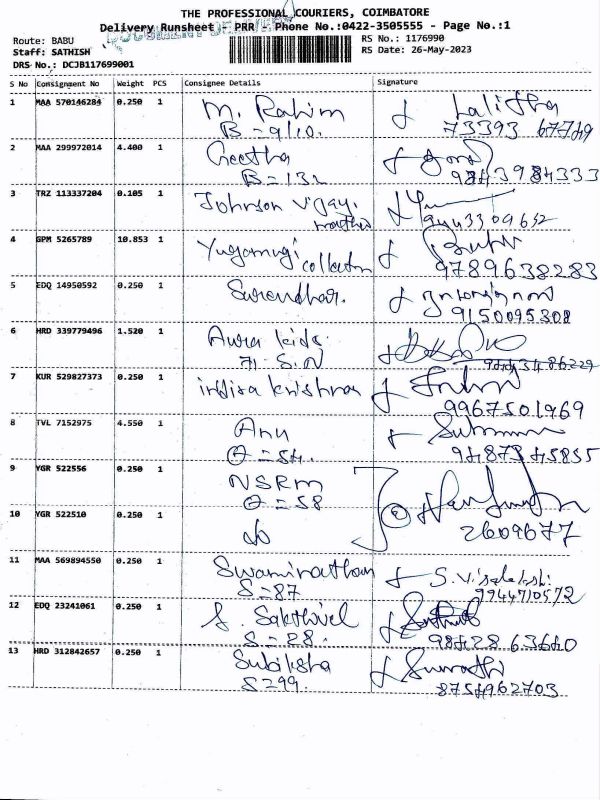 THE PROFESSIONAL COURIERS, COIMBATORE
Delivery Runsheet - PRR - Phone No.:0422-3505555 - Page No.:1
Route: BABU
RS No.: 1176990
Staff: SATHISH
RS Date: 26-May-2023
DRS No.: DCJB117699001
S No Consignment No Weight PCS Consignee Details Signature
1 MAA 570146284 0.250 1 M. Rahim Lalitha
B=9/10. 73393 67749
2 MAA 299972014 4.400 1 Geetha
B=132 9843984333
3 TRZ 113337204 0.105 1 Johnson Vijay.
4 GPM 5265789 10.853 1 collection
9789638283
5 EDQ 14950592 0.250 1 Surendhar.
9150095308
6 HRD 339779496 1.520 1 Aura kids.
71-S.N
7 KUR 529827373 0.250 1 indira krishna
9967501969
8 TVL 7152975 4.550 1 Anu
9487345835
9 YGR 522556 0.250 1 NSRM
=58
10 YGR 522510 0.250 1 do
2609677
11 MAA 569894550 0.250 1 Swaminathan S. Visalakshi
S=87 9944710572
12 EDQ 23241061 0.250 1 S. Sakthivel
S=88. 98428 63640
13 HRD 312842657 0.250 1 Subiksha Sumathi
S=99. 8754962703